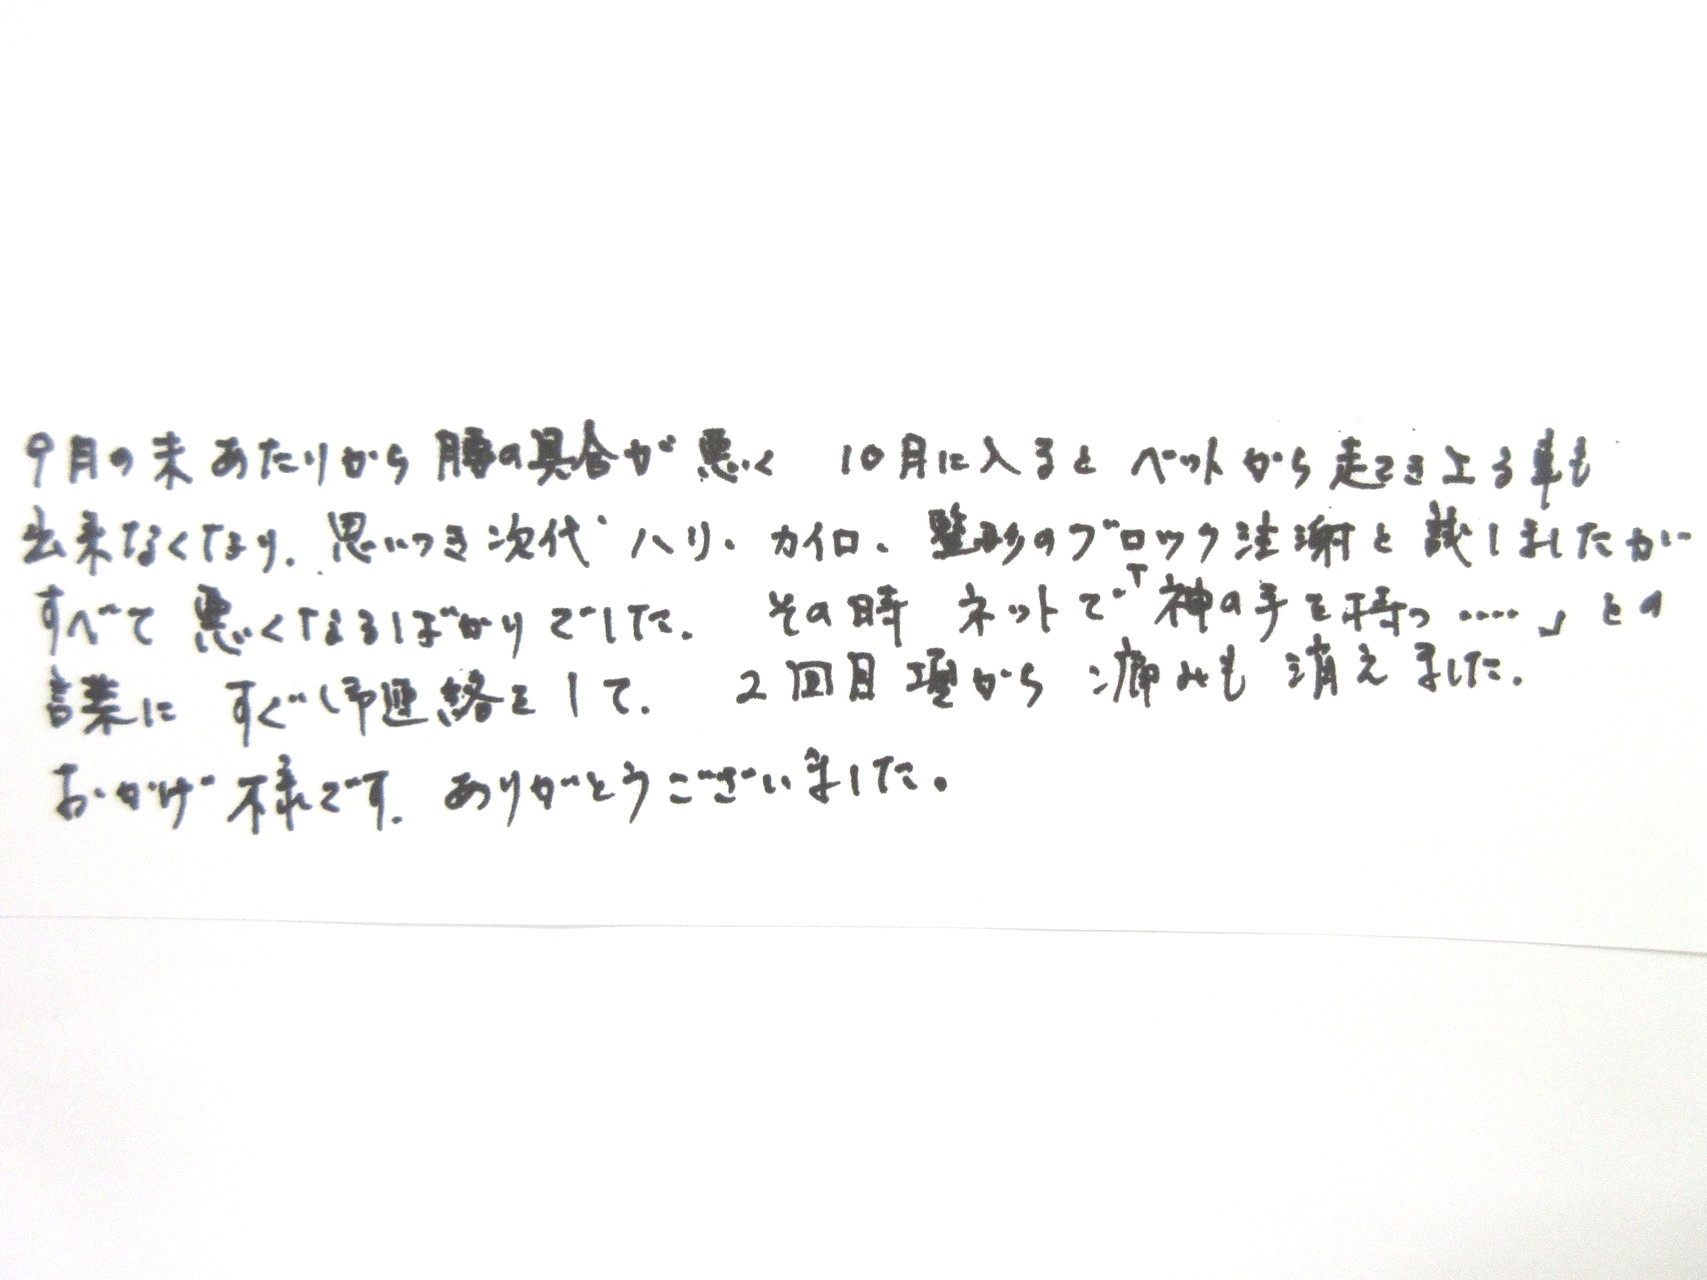 9月の末あたりから腰の具合が悪く 10月に入るとベットから起き上る事も
出来なくなり、思いつき次代ハリ、カイロ、整形のブロック注謝と試しましたが
すべて悪くなるばかりでした。その時 ネットで「神の手を持つ・・・・・」との
言葉に すぐ御連絡をして、2回目頃から 痛みも 消えました。
おかげ様です。ありがとうございました。